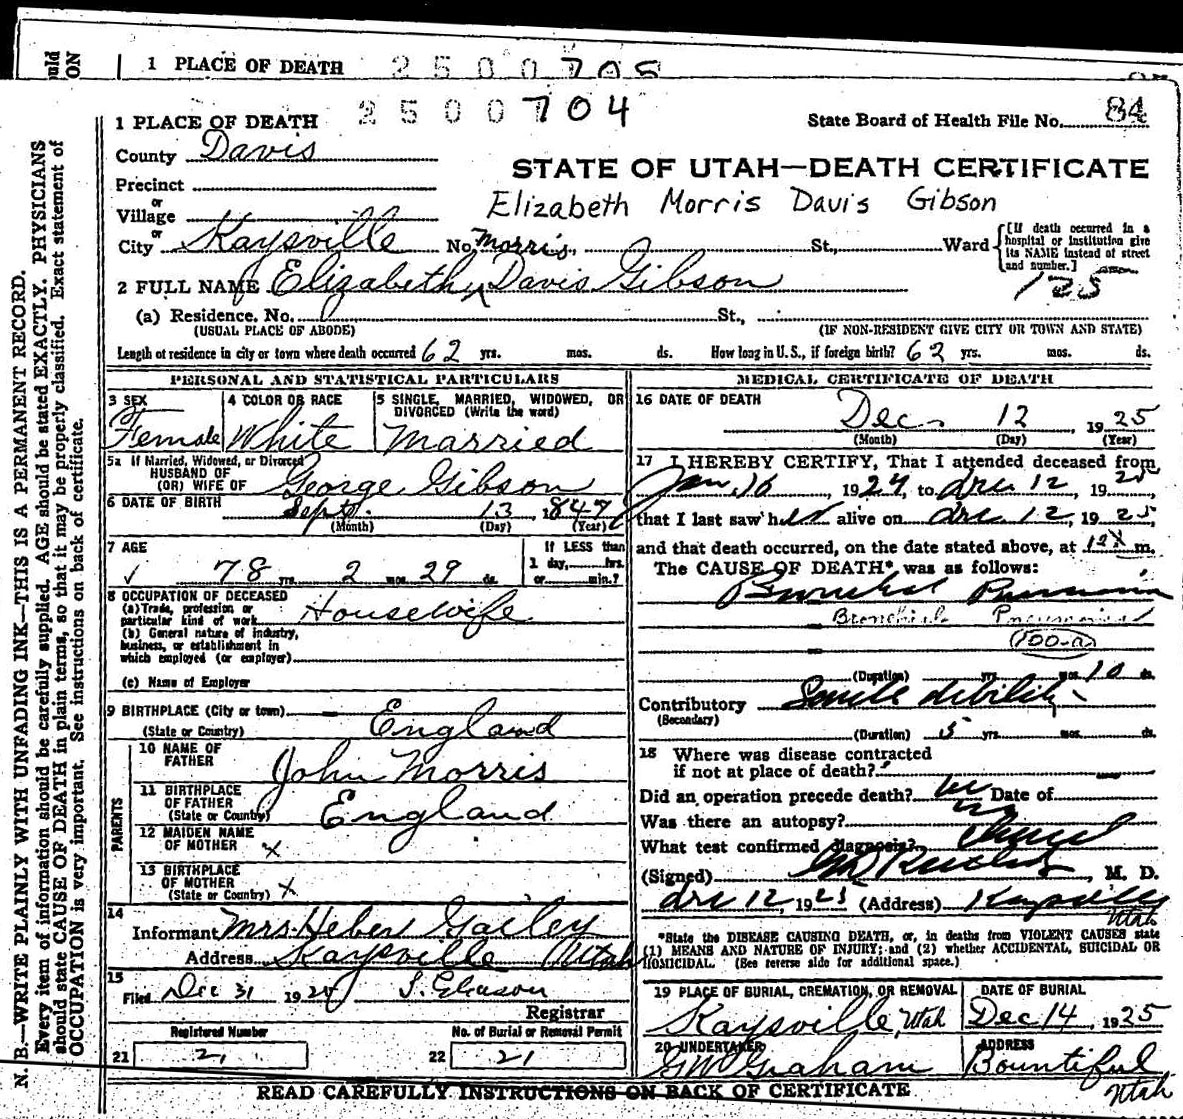 1 PLACE OF DEATH 2500705
1 PLACE OF DEATH 2500704
State Board of Health File No. 84
County Davis
STATE OF UTAH—DEATH CERTIFICATE
Precinct
Elizabeth Morris Davis Gibson
or
Village
or
City Kaysville No. St., Ward
[If death occurred in a hospital or institution give its NAME instead of street and number.]
Morris
125
2 FULL NAME Elizabeth Davis Gibson
(a) Residence. No. St.,
(USUAL PLACE OF ABODE) (IF NON-RESIDENT GIVE CITY OR TOWN AND STATE)
Length of residence in city or town where death occurred 62 yrs. mos. ds. How long in U.S., if foreign birth? 62 yrs. mos. ds.
PERSONAL AND STATISTICAL PARTICULARS
3 SEX 4 COLOR OR RACE 5 SINGLE, MARRIED, WIDOWED, OR
DIVORCED (Write the word)
Female White Married
5a If Married, Widowed, or Divorced
HUSBAND OF
(OR) WIFE OF George Gibson
6 DATE OF BIRTH Sept. 13, 1847
(Month) (Day) (Year)
7 AGE If LESS than
1 day, hrs.
78 yrs. 2 mos. 29 ds. or min.?
8 OCCUPATION OF DECEASED
(a) Trade, profession or
particular kind of work Housewife
(b) General nature of industry,
business, or establishment in
which employed (or employer)
(c) Name of Employer
9 BIRTHPLACE (City or town)
(State or Country) England
PARENTS
10 NAME OF
FATHER John Morris
11 BIRTHPLACE
OF FATHER
(State or Country) England
12 MAIDEN NAME
OF MOTHER x
13 BIRTHPLACE
OF MOTHER
(State or Country) x
14
Informant Mrs. Heber Gailey
Address Kaysville Utah
15
Filed Dec 31 19 J. Gleason
Registrar
Registered Number No. of Burial or Removal Permit
21 21 22 21
MEDICAL CERTIFICATE OF DEATH
16 DATE OF DEATH
Dec 12 1925
(Month) (Day) (Year)
17 I HEREBY CERTIFY, That I attended deceased from
Jan. 16, 1924, to Dec 12, 1925,
that I last saw her alive on Dec. 12, 1925,
and that death occurred, on the date stated above, at m.
The CAUSE OF DEATH* was as follows:
Bronchial Pneumonia
Bronchial Pneumonia
100-a
(Duration) yrs. mos. 10 ds.
Contributory Senile debility
(Secondary)
(Duration) 5 yrs. mos. ds.
18 Where was disease contracted
if not at place of death?
Did an operation precede death? no Date of
Was there an autopsy? no
What test confirmed diagnosis?
(Signed) M. D.
Dec 12, 1925 (Address) Kaysville
Utah
*State the DISEASE CAUSING DEATH, or, in deaths from VIOLENT CAUSES state
(1) MEANS AND NATURE OF INJURY; and (2) whether ACCIDENTAL, SUICIDAL OR
HOMICIDAL. (See reverse side for additional space.)
19 PLACE OF BURIAL, CREMATION, OR REMOVAL DATE OF BURIAL
Kaysville, Utah Dec 14, 1925
20 UNDERTAKER ADDRESS
GW Graham Bountiful
Utah
READ CAREFULLY INSTRUCTIONS ON BACK OF CERTIFICATE
N. B.—WRITE PLAINLY WITH UNFADING INK—THIS IS A PERMANENT RECORD.
Every item of information should be carefully supplied. AGE should be stated EXACTLY. PHYSICIANS
should state CAUSE OF DEATH in plain terms, so that it may be properly classified. Exact statement of
OCCUPATION is very important. See instructions on back of certificate.